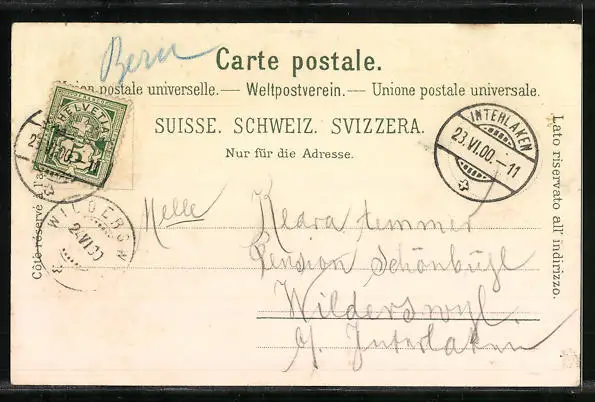 Bern
Carte postale.
Union postale universelle. — Weltpostverein. — Unione postale universale.
SUISSE. SCHWEIZ. SVIZZERA.
Nur für die Adresse.
HELVETIA
23.VI.00.-11
INTERLAKEN
23.VI.00.-11
WILDERSW
24.VI.00
Côté réservé à l'a
Lato riservato all' indirizzo.
Melle Klara
Pension Schönbühl
Wilderswyl
b/ Interlaken